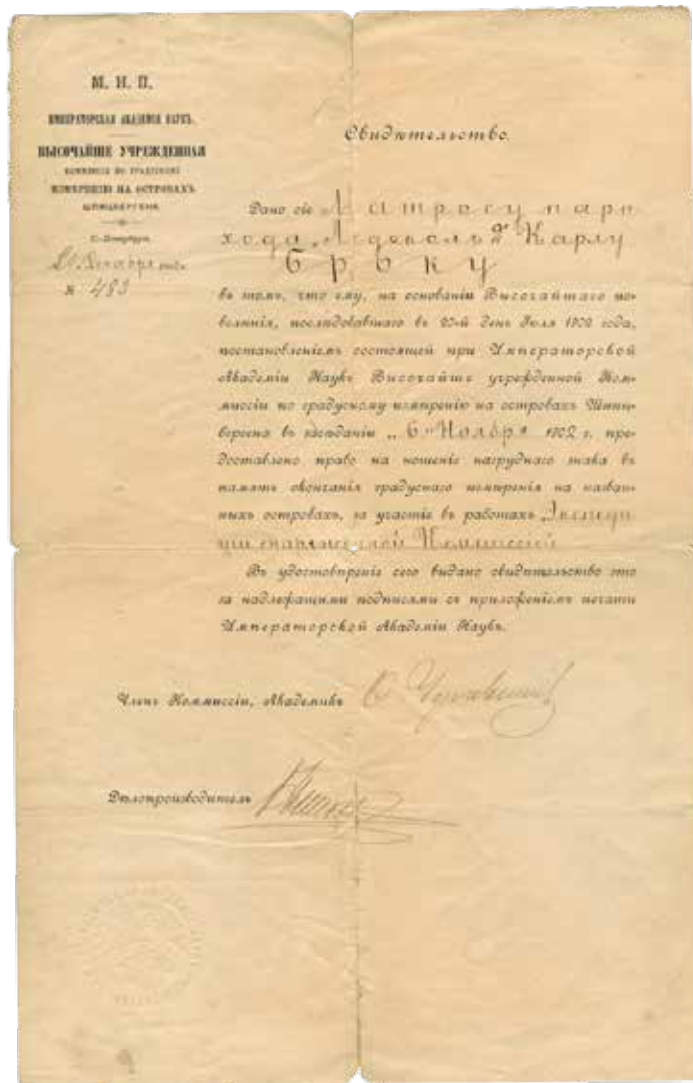 М. Н. П.
ИМПЕРАТОРСКАЯ АКАДЕМІЯ НАУКЪ.
ВЫСОЧАЙШЕ УЧРЕЖДЕННАЯ
КОММИСІЯ ПО ГРАДУСНОМУ
ИЗМѢРЕНІЮ НА ОСТРОВАХЪ
ШПИЦБЕРГЕНА.
С.-Петербургъ.
Декабря
№ 483
Свидѣтельство.
Дано сіе Матросу паро
хода „Ледоколъ 2й" Карлу
въ томъ, что ему, на основаніи Высочайшаго по-
велѣнія, послѣдовавшаго въ 20-й день Іюля 1902 года,
постановленіемъ состоящей при Императорской
Академіи Наукъ Высочайше учрежденной Ком-
миссіи по градусному измѣренію на островахъ Шпиц-
бергена въ засѣданіи „6" Ноября 1902 г. пре-
доставлено право на ношеніе нагруднаго знака въ
память окончанія градуснаго измѣренія на назван-
ныхъ островахъ, за участіе въ работахъ Экспеди
Коммиссіей
Въ удостовѣреніе сего выдано свидѣтельство это
за надлежащими подписями съ приложеніемъ печати
Императорской Академіи Наукъ.
Членъ Коммиссіи, Академикъ
Дѣлопроизводитель